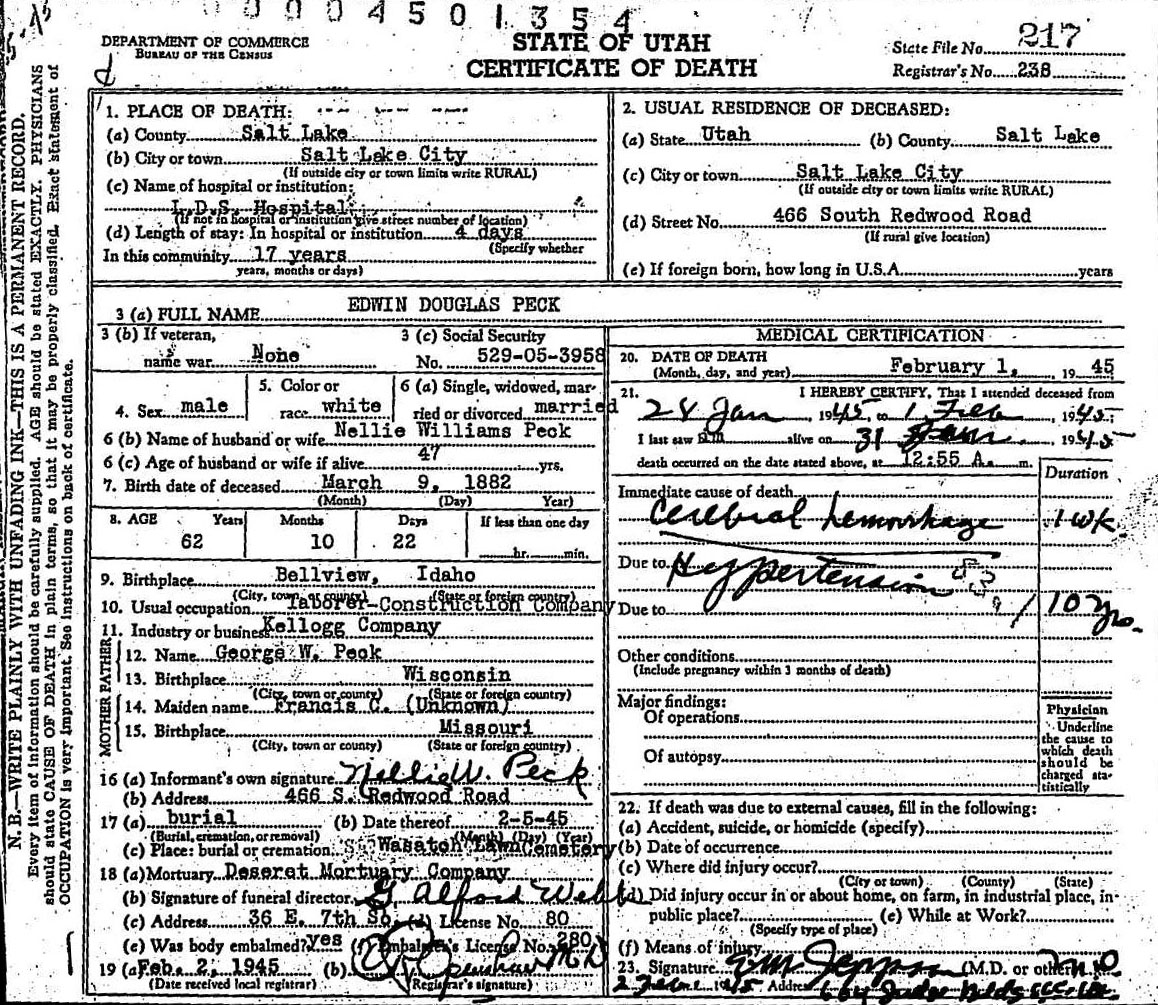 0004501354
DEPARTMENT OF COMMERCE
BUREAU OF THE CENSUS
STATE OF UTAH
CERTIFICATE OF DEATH
State File No. 217
Registrar's No. 238
N. B.—WRITE PLAINLY WITH UNFADING INK—THIS IS A PERMANENT RECORD.
Every item of information should be carefully supplied. AGE should be stated EXACTLY. PHYSICIANS
should state CAUSE OF DEATH in plain terms, so that it may be properly classified. Exact statement of
OCCUPATION is very important. See instructions on back of certificate.
1. PLACE OF DEATH:
(a) County Salt Lake
(b) City or town Salt Lake City
(If outside city or town limits write RURAL)
(c) Name of hospital or institution:
L.D.S. Hospital
(If not in hospital or institution give street number of location)
(d) Length of stay: In hospital or institution 4 days
(Specify whether
In this community 17 years
years, months or days)
2. USUAL RESIDENCE OF DECEASED:
(a) State Utah (b) County Salt Lake
(c) City or town Salt Lake City
(If outside city or town limits write RURAL)
(d) Street No. 466 South Redwood Road
(If rural give location)
(e) If foreign born, how long in U.S.A. years
3 (a) FULL NAME EDWIN DOUGLAS PECK
3 (b) If veteran,
name war. None
3 (c) Social Security
No. 529-05-3958
4. Sex male
5. Color or
race white
6 (a) Single, widowed, mar-
ried or divorced married
6 (b) Name of husband or wife Nellie Williams Peck
6 (c) Age of husband or wife if alive 47 yrs.
7. Birth date of deceased March 9, 1882
(Month) (Day) Year)
8. AGE Years Months Days If less than one day
62 10 22 hr. min.
9. Birthplace Bellview, Idaho
(City, town, or county) (State or foreign country)
10. Usual occupation laborer-Construction Company
11. Industry or business Kellogg Company
FATHER
12. Name George W. Peck
13. Birthplace Wisconsin
(City, town or county) (State or foreign country)
MOTHER
14. Maiden name Francis C. (Unknown)
15. Birthplace Missouri
(City, town or county) (State or foreign country)
16 (a) Informant's own signature Nellie W. Peck
(b) Address 466 S. Redwood Road
17 (a) burial (b) Date thereof 2-5-45
(Burial, cremation, or removal) (Month) (Day) (Year)
(c) Place: burial or cremation. Wasatch Lawn Cemetery
18 (a) Mortuary Deseret Mortuary Company
(b) Signature of funeral director G. Alford Webb
(c) Address 36 E. 7th So. (d) License No. 80
(e) Was body embalmed? yes (f) Embalmer's License No. 280
19 (a) Feb. 2, 1945 (b) M D
(Date received local registrar) (Registrar's signature)
MEDICAL CERTIFICATION
20. DATE OF DEATH
(Month, day, and year) February 1, 19 45
21. I HEREBY CERTIFY, That I attended deceased from
28 Jan, 1945 to 1 Feb, 1945.
I last saw him alive on 31 Jan, 1945
death occurred on the date stated above, at 12:55 A. m.
Duration
Immediate cause of death
Cerebral hemorrhage 1 wk
Due to Hypertension 83a
Due to 10 yrs.
Other conditions
(Include pregnancy within 3 months of death)
Major findings:
Of operations
Of autopsy
Physician
Underline
the cause to
which death
should be
charged sta-
tistically
22. If death was due to external causes, fill in the following:
(a) Accident, suicide, or homicide (specify)
(b) Date of occurrence
(c) Where did injury occur?
(City or town) (County) (State)
(d) Did injury occur in or about home, on farm, in industrial place, in-
public place? (e) While at Work?
(Specify type of place)
(f) Means of injury
23. Signature (M.D. or other) M.D.
1945 Address